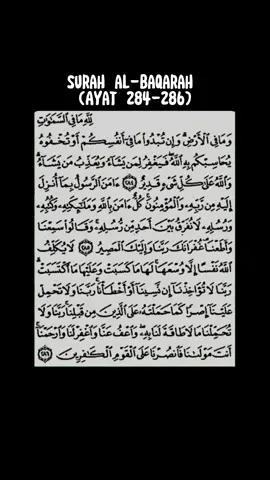 SURAH AL-BAQARAH
(AYAT 284-286)
لِلَّهِ مَا فِي السَّمَاوَاتِ
وَمَا فِي الْأَرْضِ وَإِنْ تُبْدُوا مَا فِي أَنْفُسِكُمْ أَوْ تُخْفُوهُ
يُحَاسِبْكُمْ بِهِ اللَّهُ فَيَغْفِرُ لِمَنْ يَشَاءُ وَيُعَذِّبُ مَنْ يَشَاءُ
وَاللَّهُ عَلَىٰ كُلِّ شَيْءٍ قَدِيرٌ ٢٨٤ ءَامَنَ الرَّسُولُ بِمَا أُنْزِلَ
إِلَيْهِ مِنْ رَبِّهِ وَالْمُؤْمِنُونَ كُلٌّ ءَامَنَ بِاللَّهِ وَمَلَائِكَتِهِ وَكُتُبِهِ
وَرُسُلِهِ لَا نُفَرِّقُ بَيْنَ أَحَدٍ مِنْ رُسُلِهِ وَقَالُوا سَمِعْنَا
وَأَطَعْنَا غُفْرَانَكَ رَبَّنَا وَإِلَيْكَ الْمَصِيرُ ٢٨٥ لَا يُكَلِّفُ
اللَّهُ نَفْسًا إِلَّا وُسْعَهَا لَهَا مَا كَسَبَتْ وَعَلَيْهَا مَا اكْتَسَبَتْ
رَبَّنَا لَا تُؤَاخِذْنَا إِنْ نَسِينَا أَوْ أَخْطَأْنَا رَبَّنَا وَلَا تَحْمِلْ
عَلَيْنَا إِصْرًا كَمَا حَمَلْتَهُ عَلَى الَّذِينَ مِنْ قَبْلِنَا رَبَّنَا وَلَا
تُحَمِّلْنَا مَا لَا طَاقَةَ لَنَا بِهِ وَاعْفُ عَنَّا وَاغْفِرْ لَنَا وَارْحَمْنَا
أَنْتَ مَوْلَانَا فَانْصُرْنَا عَلَى الْقَوْمِ الْكَافِرِينَ ٢٨٦